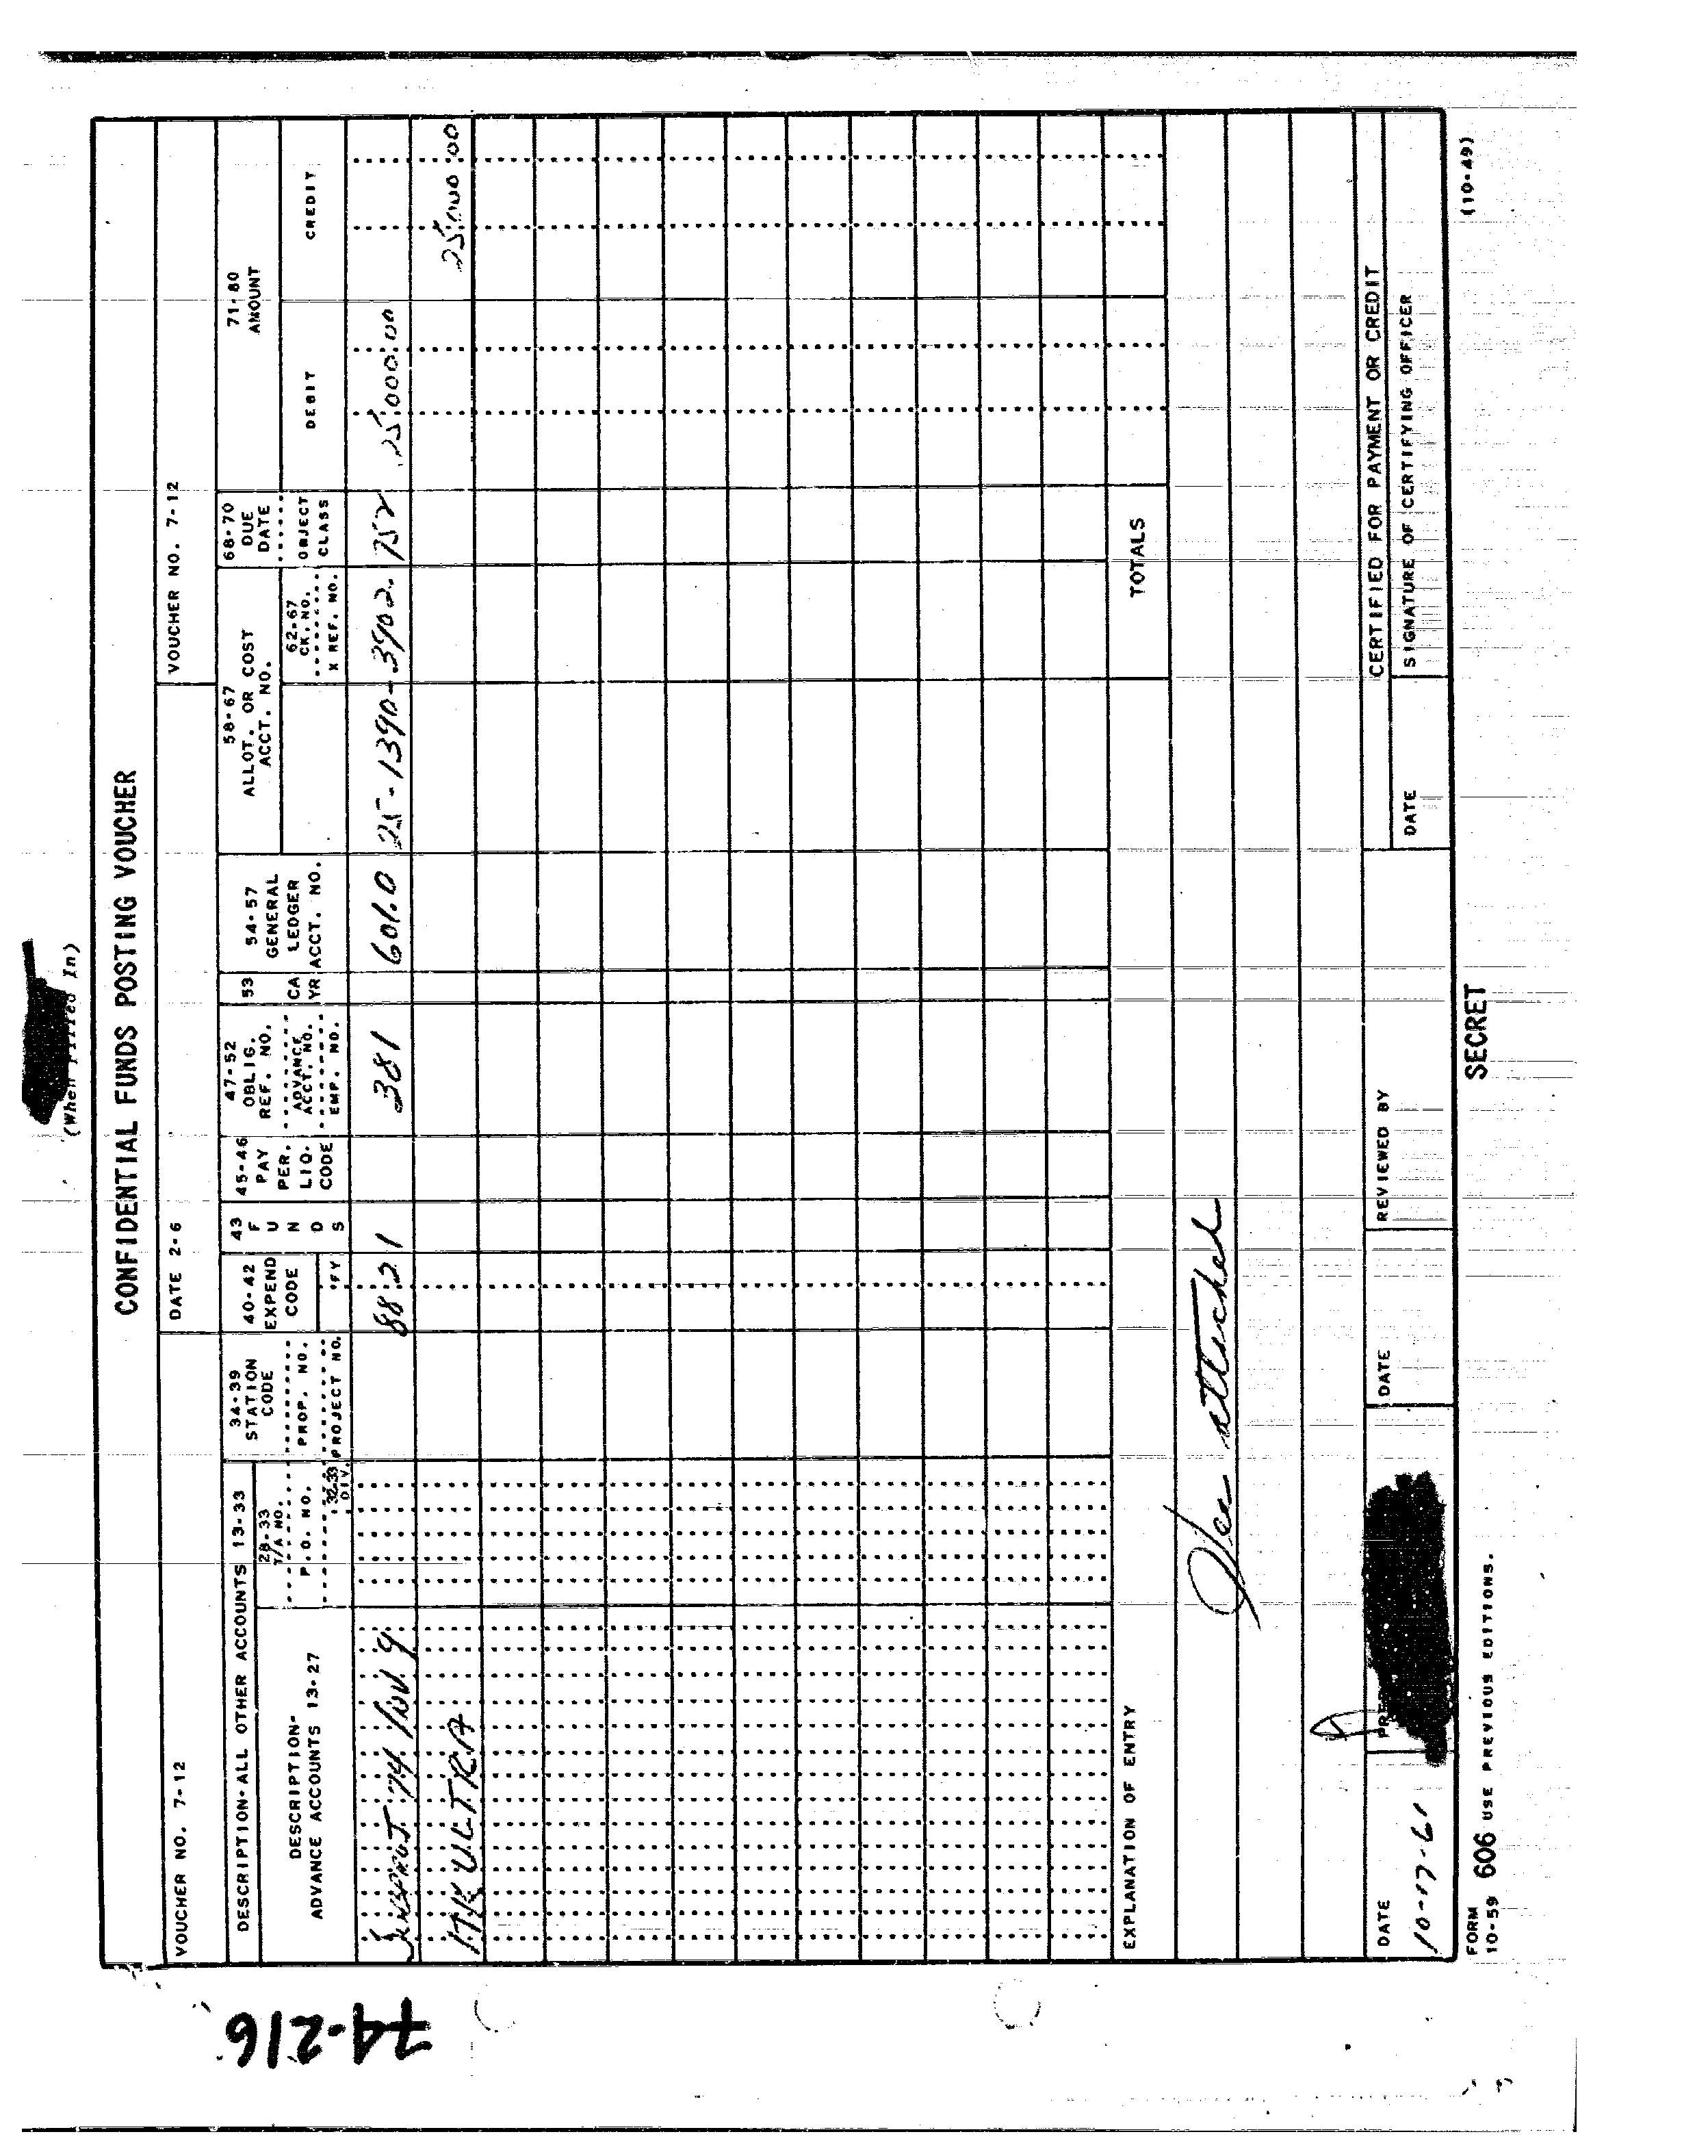 (When Filled In)
CONFIDENTIAL FUNDS POSTING VOUCHER
VOUCHER NO. 7-12
DATE 2-6
VOUCHER NO. 7-12
DESCRIPTION-ALL OTHER ACCOUNTS 13-33
DESCRIPTION-
ADVANCE ACCOUNTS 13-27
28-33
T/A NO.
P.O. NO.
32-33
DIV.
34-39
STATION
CODE
PROP. NO.
PROJECT NO.
40-42
EXPEND
CODE
FY
43
F
U
N
D
S
45-46
PAY
PER.
LIQ.
CODE
47-52
OBLIG.
REF. NO.
ADVANCE
ACCT. NO.
EMP. NO.
53
CA
YR
54-57
GENERAL
LEDGER
ACCT. NO.
58-67
ALLOT. OR COST
ACCT. NO.
62-67
CK. NO.
X REF. NO.
68-70
DUE
DATE
OBJECT
CLASS
71-80
AMOUNT
DEBIT
CREDIT
74 88 21 381 601.0 25-1390-3902 752 25,000.00
MKULTRA 25,000 00
EXPLANATION OF ENTRY
TOTALS
See attached
DATE
10-17-61
PR
DATE
REVIEWED BY
CERTIFIED FOR PAYMENT OR CREDIT
DATE
SIGNATURE OF CERTIFYING OFFICER
FORM
10-59 606 USE PREVIOUS EDITIONS.
SECRET
(10-49)
74-216